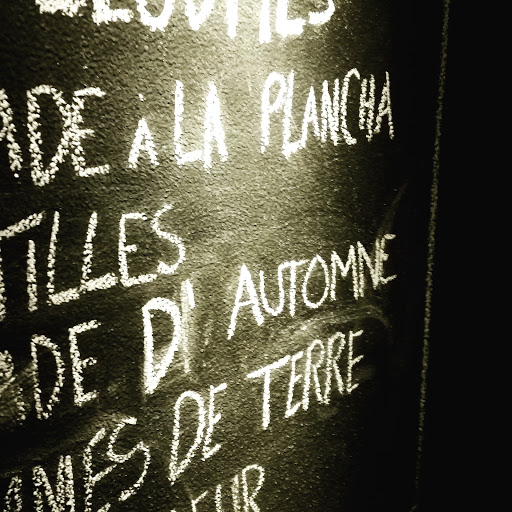 ADE À LA PLANCHA
TILLES
ADE D' AUTOMNE
AMES DE TERRE
EUR